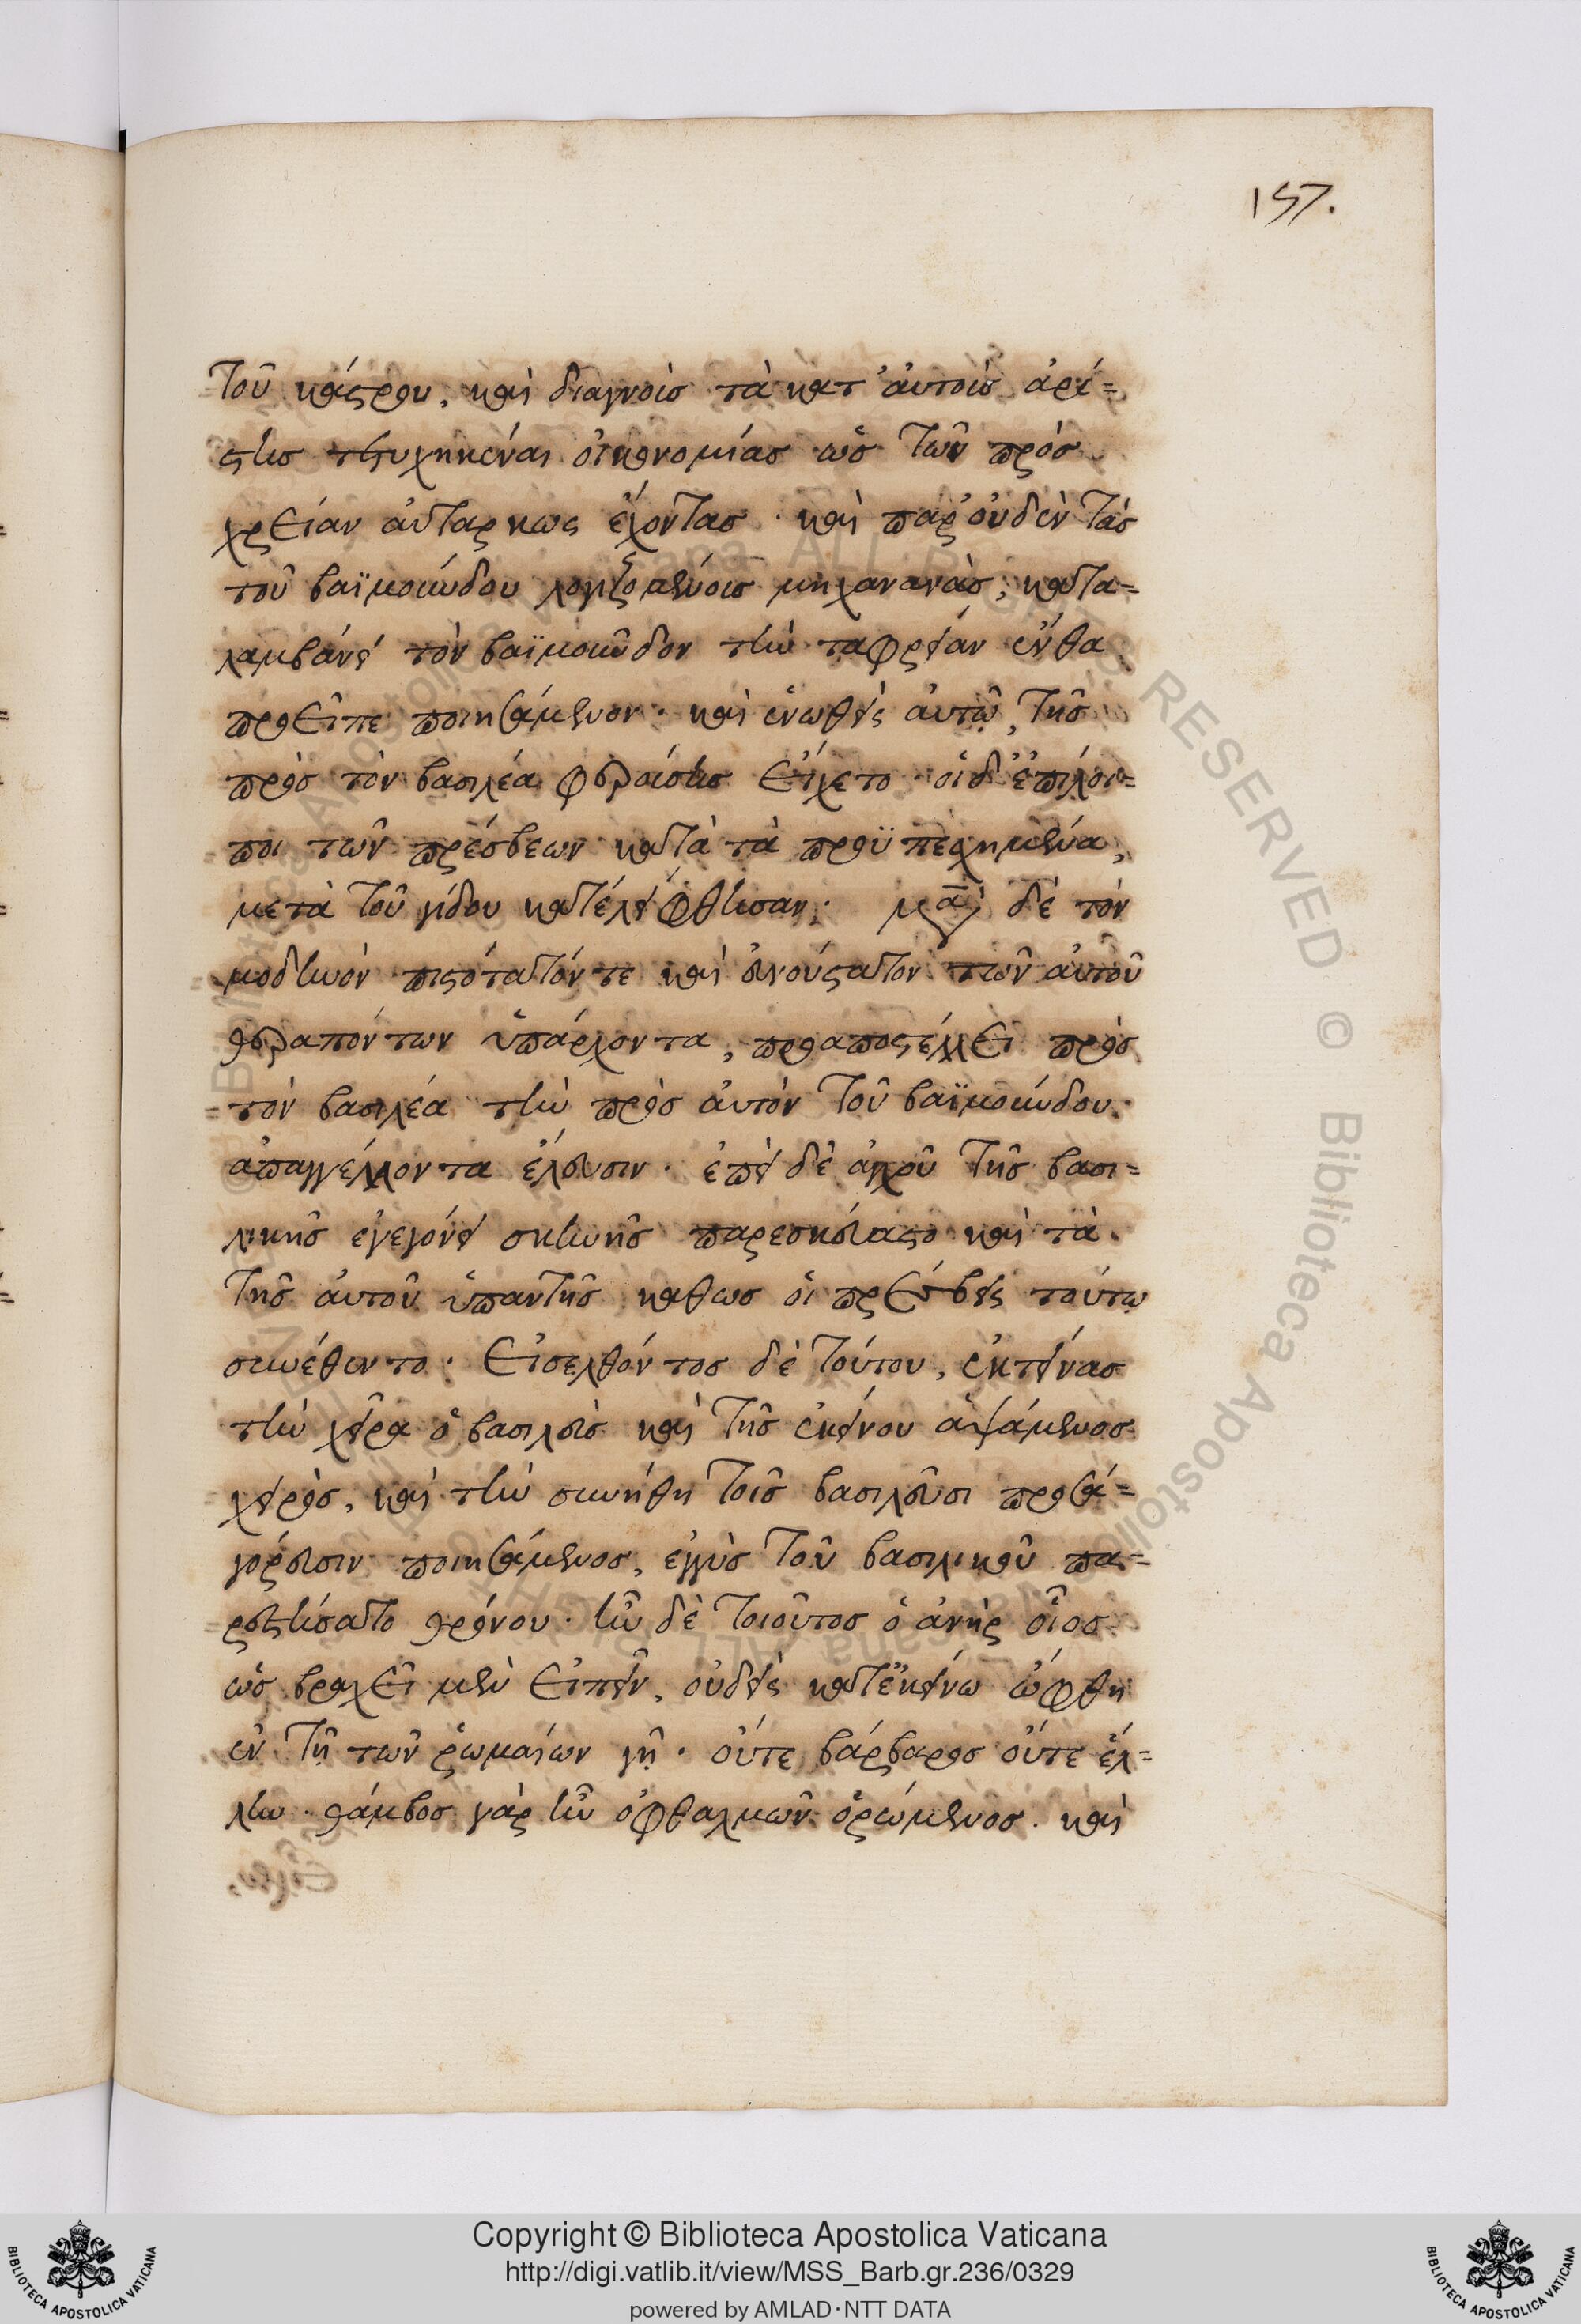 157.
τοῦ κάστρου, καὶ διαγνοὺς τὰ κατ' αὐτοὺς ἀρί=
στης τετυχηκέναι οἰκονομίας ὡς τῶν πρὸς
χρείαν αὐτάρκως ἔχοντας· καὶ παρ' οὐδὲν τὰς
τοῦ βαϊμούνδου λογιζομένους μηχανανὰς, κατα=
λαμβάνει τὸν βαϊμοῦνδον τὴν ταφρείαν ἔνθα
προεῖπε ποιησάμενον· καὶ ἑνωθεὶς αὐτῷ, τῆς
πρὸς τὸν βασιλέα φερούσης εἴχετο· οἱ δ' ἐπίλοι=
ποι τῶν πρέσβεων κατὰ τὰ προϋπεσχημένα,
μετὰ τοῦ γίδου κατελείφθησαν· μα δὲ τὸν
μοδηνὸν πιστότατόν τε καὶ εὐνούστατον τῶν αὐτοῦ
θεραπόντων ὑπάρχοντα, προαποστέλλει πρὸς
τὸν βασιλέα τὴν πρὸς αὐτὸν τοῦ βαϊμούνδου
ἀπαγγέλλοντα ἔλευσιν· ἐπεὶ δὲ ἀγχοῦ τῆς βασι=
λικῆς ἐγεγόνει σκηνῆς παρεσκεύαστο καὶ τὰ
τῆς αὐτοῦ ὑπαντῆς καθως οἱ πρέσβεις τούτῳ
συνέθεντο· εἰσελθόντος δὲ τούτου, ἐκτείνας
τὴν χεῖρα ὁ βασιλεὺς καὶ τῆς ἐκείνου ἁψάμενος
χειρὸς, καὶ τὴν συνήθη τοῖς βασιλεῦσι προσα=
γόρευσιν ποιησάμενος, ἐγγὺς τοῦ βασιλικοῦ πα=
ρεστήσατο θρόνου· ἦν δὲ τοιοῦτος ὁ ἀνὴρ οἷος
ὡς βραχεῖ μὲν εἰπεῖν, οὐδεὶς κατ' ἐκείνω ὤφθη
ἐν τῇ τῶν ῥωμαίων γῇ· οὔτε βάρβαρος οὔτε ἕλ=
λην· θάμβος γὰρ ἦν ὀφθαλμῶν ὁρώμενος. καὶ
Copyright © Biblioteca Apostolica Vaticana
http://digi.vatlib.it/view/MSS_Barb.gr.236/0329
powered by AMLAD·NTT DATA